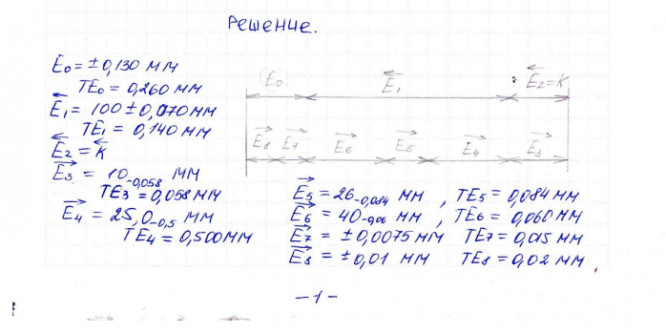 Решение.
E₀ = ±0,130 мм
TE₀ = 0,260 мм
E₁ = 100 ± 0,070 мм
TE₁ = 0,140 мм
E₂ = K
E₃ = 10₋₀,₀₅₈ мм
TE₃ = 0,058 мм
E₄ = 25,0₋₀,₅ мм
TE₄ = 0,500 мм
E₀ E₁ E₂ = K
E₈ E₇ E₆ E₅ E₄ E₃
E₅ = 26₋₀,₀₈₄ мм , TE₅ = 0,084 мм
E₆ = 40₋₀,₀₆ мм , TE₆ = 0,060 мм
E₇ = ±0,0075 мм TE₇ = 0,015 мм
E₈ = ±0,01 мм TE₈ = 0,02 мм.
-1-